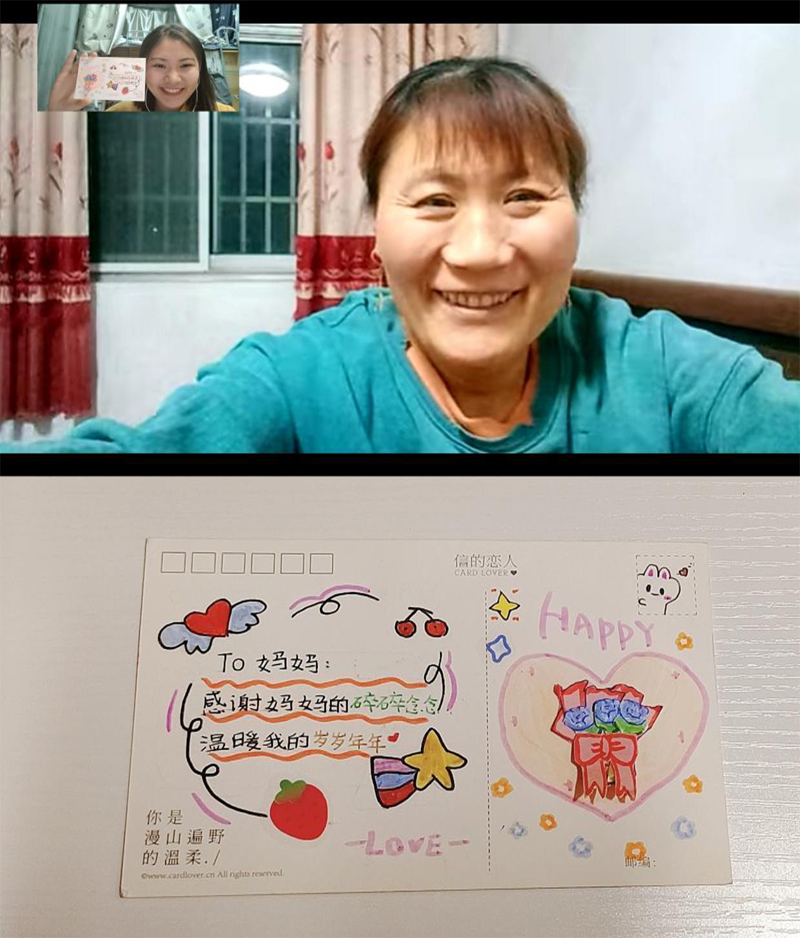 信的恋人
CARD LOVER
HAPPY
To 妈妈:
感谢妈妈的碎碎念念
温暖我的岁岁年年
LOVE
你是
漫山遍野
的溫柔./
©www.cardlover.cn All rights reserved.
邮编: